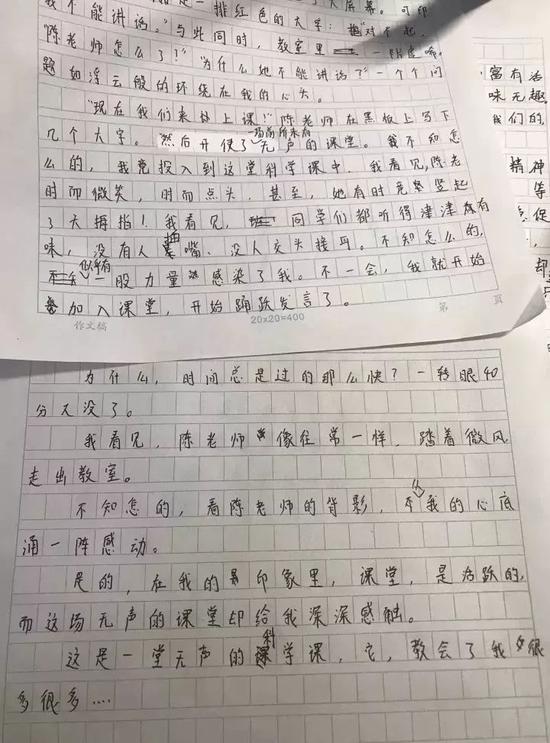 我不能讲话。"与此同时,教室里
陈老师怎么了?""为什么她不能讲话了"一个个问
题如浮云般的环绕在我的心头。
"现在我们来上课!"陈老师在黑板上写下
几个大字。然后开使了一场前所未有无声的课堂。我不知怎
么的,我竟投入到这堂科学课中。我看见,陈老
时而微笑,时而点头,甚至,她有时竟竖起
了大拇指!我看见,同学们都听得津津有
味,没有人插嘴、没人交头接耳。不知怎么的,
似乎有一股力量感染了我。不一会,我就开始
加入课堂,开始踊跃发言了。
作文稿 20x20=400 第 页
富有活
味无趣
我们的
精神
等
促
却
为什么,时间总是过的那么快?一转眼40
分又没了。
我看见,陈老师像往常一样,踏着微风
走出教室。
不知怎的,看陈老师的背影,从我的心底
涌一阵感动。
是的,在我的印象里,课堂,是活跃的,
而这场无声的课堂却给我深深感触。
这是一堂无声的科学课,它,教会了我很
多很多....